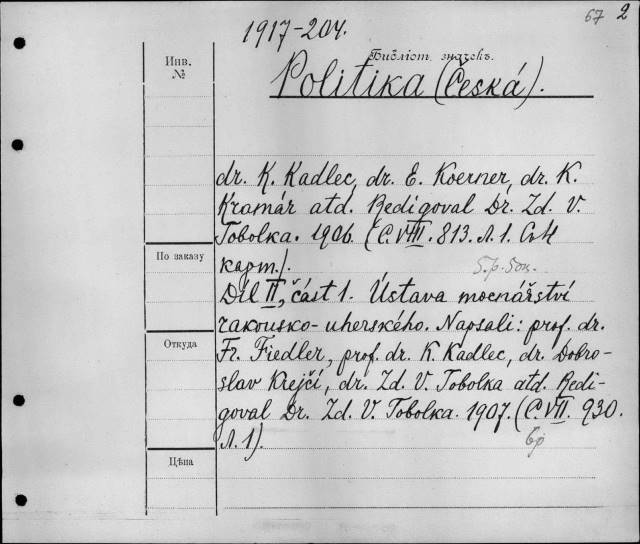 67 2
1917-204.
Библіот. значекъ.
Инв.
№
Politika (Česká).
dr. K. Kadlec, dr. E. Koerner, dr. K.
Kramár atd. Redigoval Dr. Zd. V.
Tobolka. 1906. (C. VIII. 813. Л. 1. См
карт.).
По заказу
5 р. 50к.
Díl II, část 1. Ústava mocnářství
rakousko-uherského. Napsali: prof. dr.
Откуда
Fr. Fiedler, prof. dr. K. Kadlec, dr. Dobro-
slav Krejčí, dr. Zd. V. Tobolka atd. Redi-
goval Dr. Zd. V. Tobolka. 1907. (C. VII. 930.
Л. 1).
6р
Цѣна